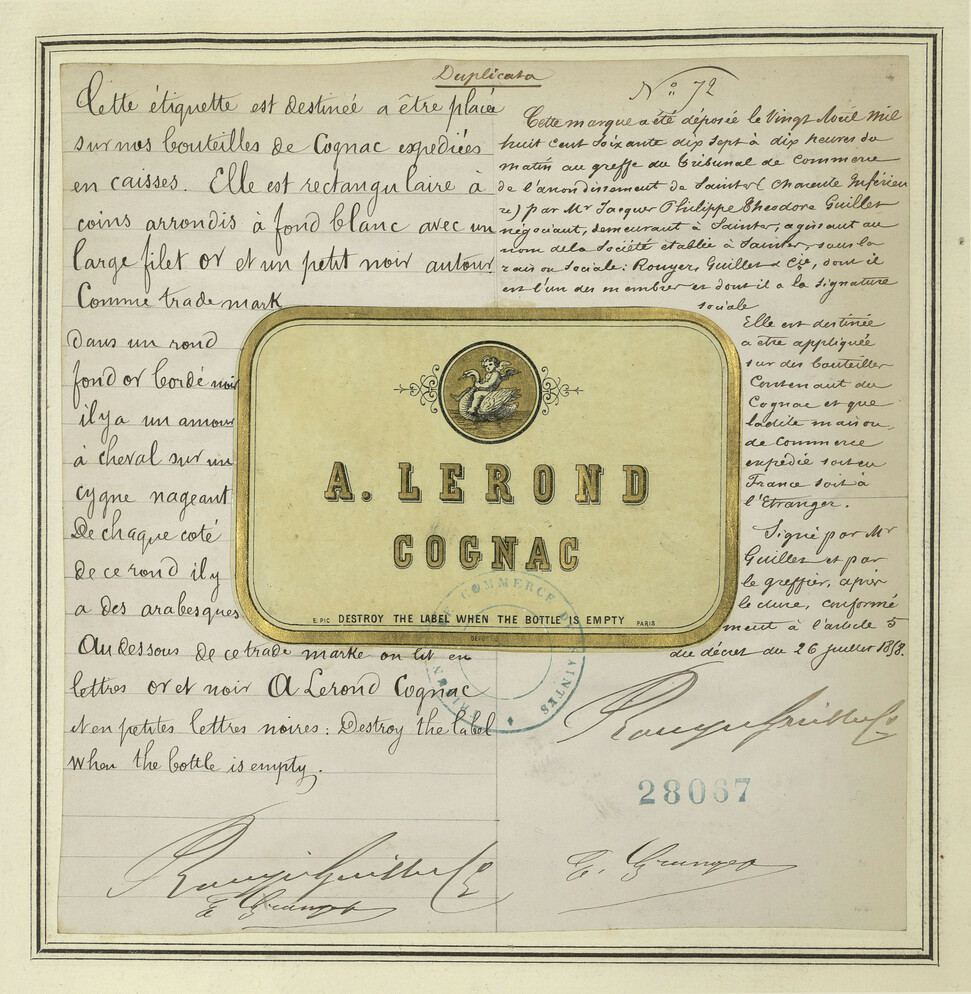 Duplicata
Cette étiquette est destinée a être placée
sur nos bouteilles de Cognac expédiées
en caisses. Elle est rectangulaire à
coins arrondis à fond blanc avec un
large filet or et un petit noir autour
Comme trade mark
dans un rond
fond or bordé noir
il y a un amour
à cheval sur un
cygne nageant
De chaque coté
de ce rond il y
a des arabesques
Au dessous de ce trade marke on lit en
lettres or et noir A Lerond Cognac
et en petites lettres noires : Destroy the label
when the bottle is empty.
Rouyer Guillet Co
E. Granger
No 72
Cette marque a été déposée le Vingt Août mil
huit cent soixante dix sept à dix heures du
matin au greffe du Tribunal de Commerce
de l'arrondissement de Saintes (Charente Inférieu
re) par Mr Jacques Philippe Théodore Guillet
négociant, demeurant à Saintes, agissant au
nom de la Société établie à Saintes, sous la
raison sociale : Rouyer, Guillet & Cie, dont il
est l'un des membres et dont il a la signature
sociale
Elle est destinée
a être appliquée
sur des bouteilles
Contenant du
Cognac et que
ladite maison
de Commerce
expédie soit en
France soit à
l'Etranger.
Signé par Mr
Guillet et par
le greffier, après
lecture, conformé
ment à l'article 5
du décret du 26 juillet 1858.
Rouyer Guillet Co
28067
E. Granger
A. LEROND
COGNAC
E. PIC DESTROY THE LABEL WHEN THE BOTTLE IS EMPTY PARIS
DÉPOSÉ
COMMERCE DE SAINTES